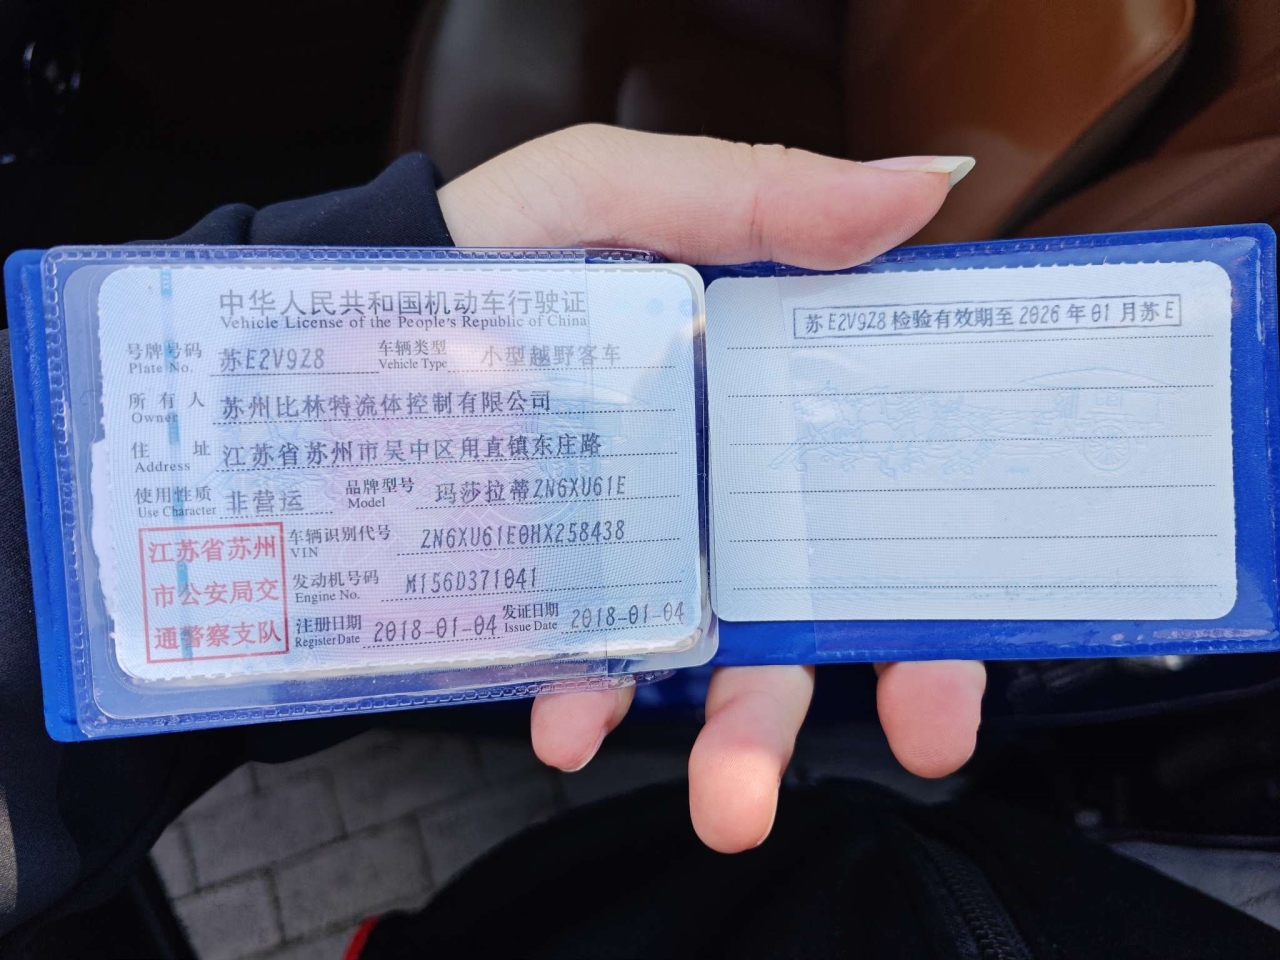 中华人民共和国机动车行驶证
Vehicle License of the People's Republic of China
号牌号码 苏E2V9Z8 车辆类型 小型越野客车
Plate No. Vehicle Type
所有人 苏州比林特流体控制有限公司
Owner
住址 江苏省苏州市吴中区甪直镇东庄路
Address
使用性质 非营运 品牌型号 玛莎拉蒂ZN6XU61E
Use Character Model
车辆识别代号 ZN6XU61E0HX258438
VIN
发动机号码 M156D371041
Engine No.
注册日期 2018-01-04 发证日期 2018-01-04
Register Date Issue Date
江苏省苏州
市公安局交
通警察支队
苏E2V9Z8检验有效期至2026年01月苏E